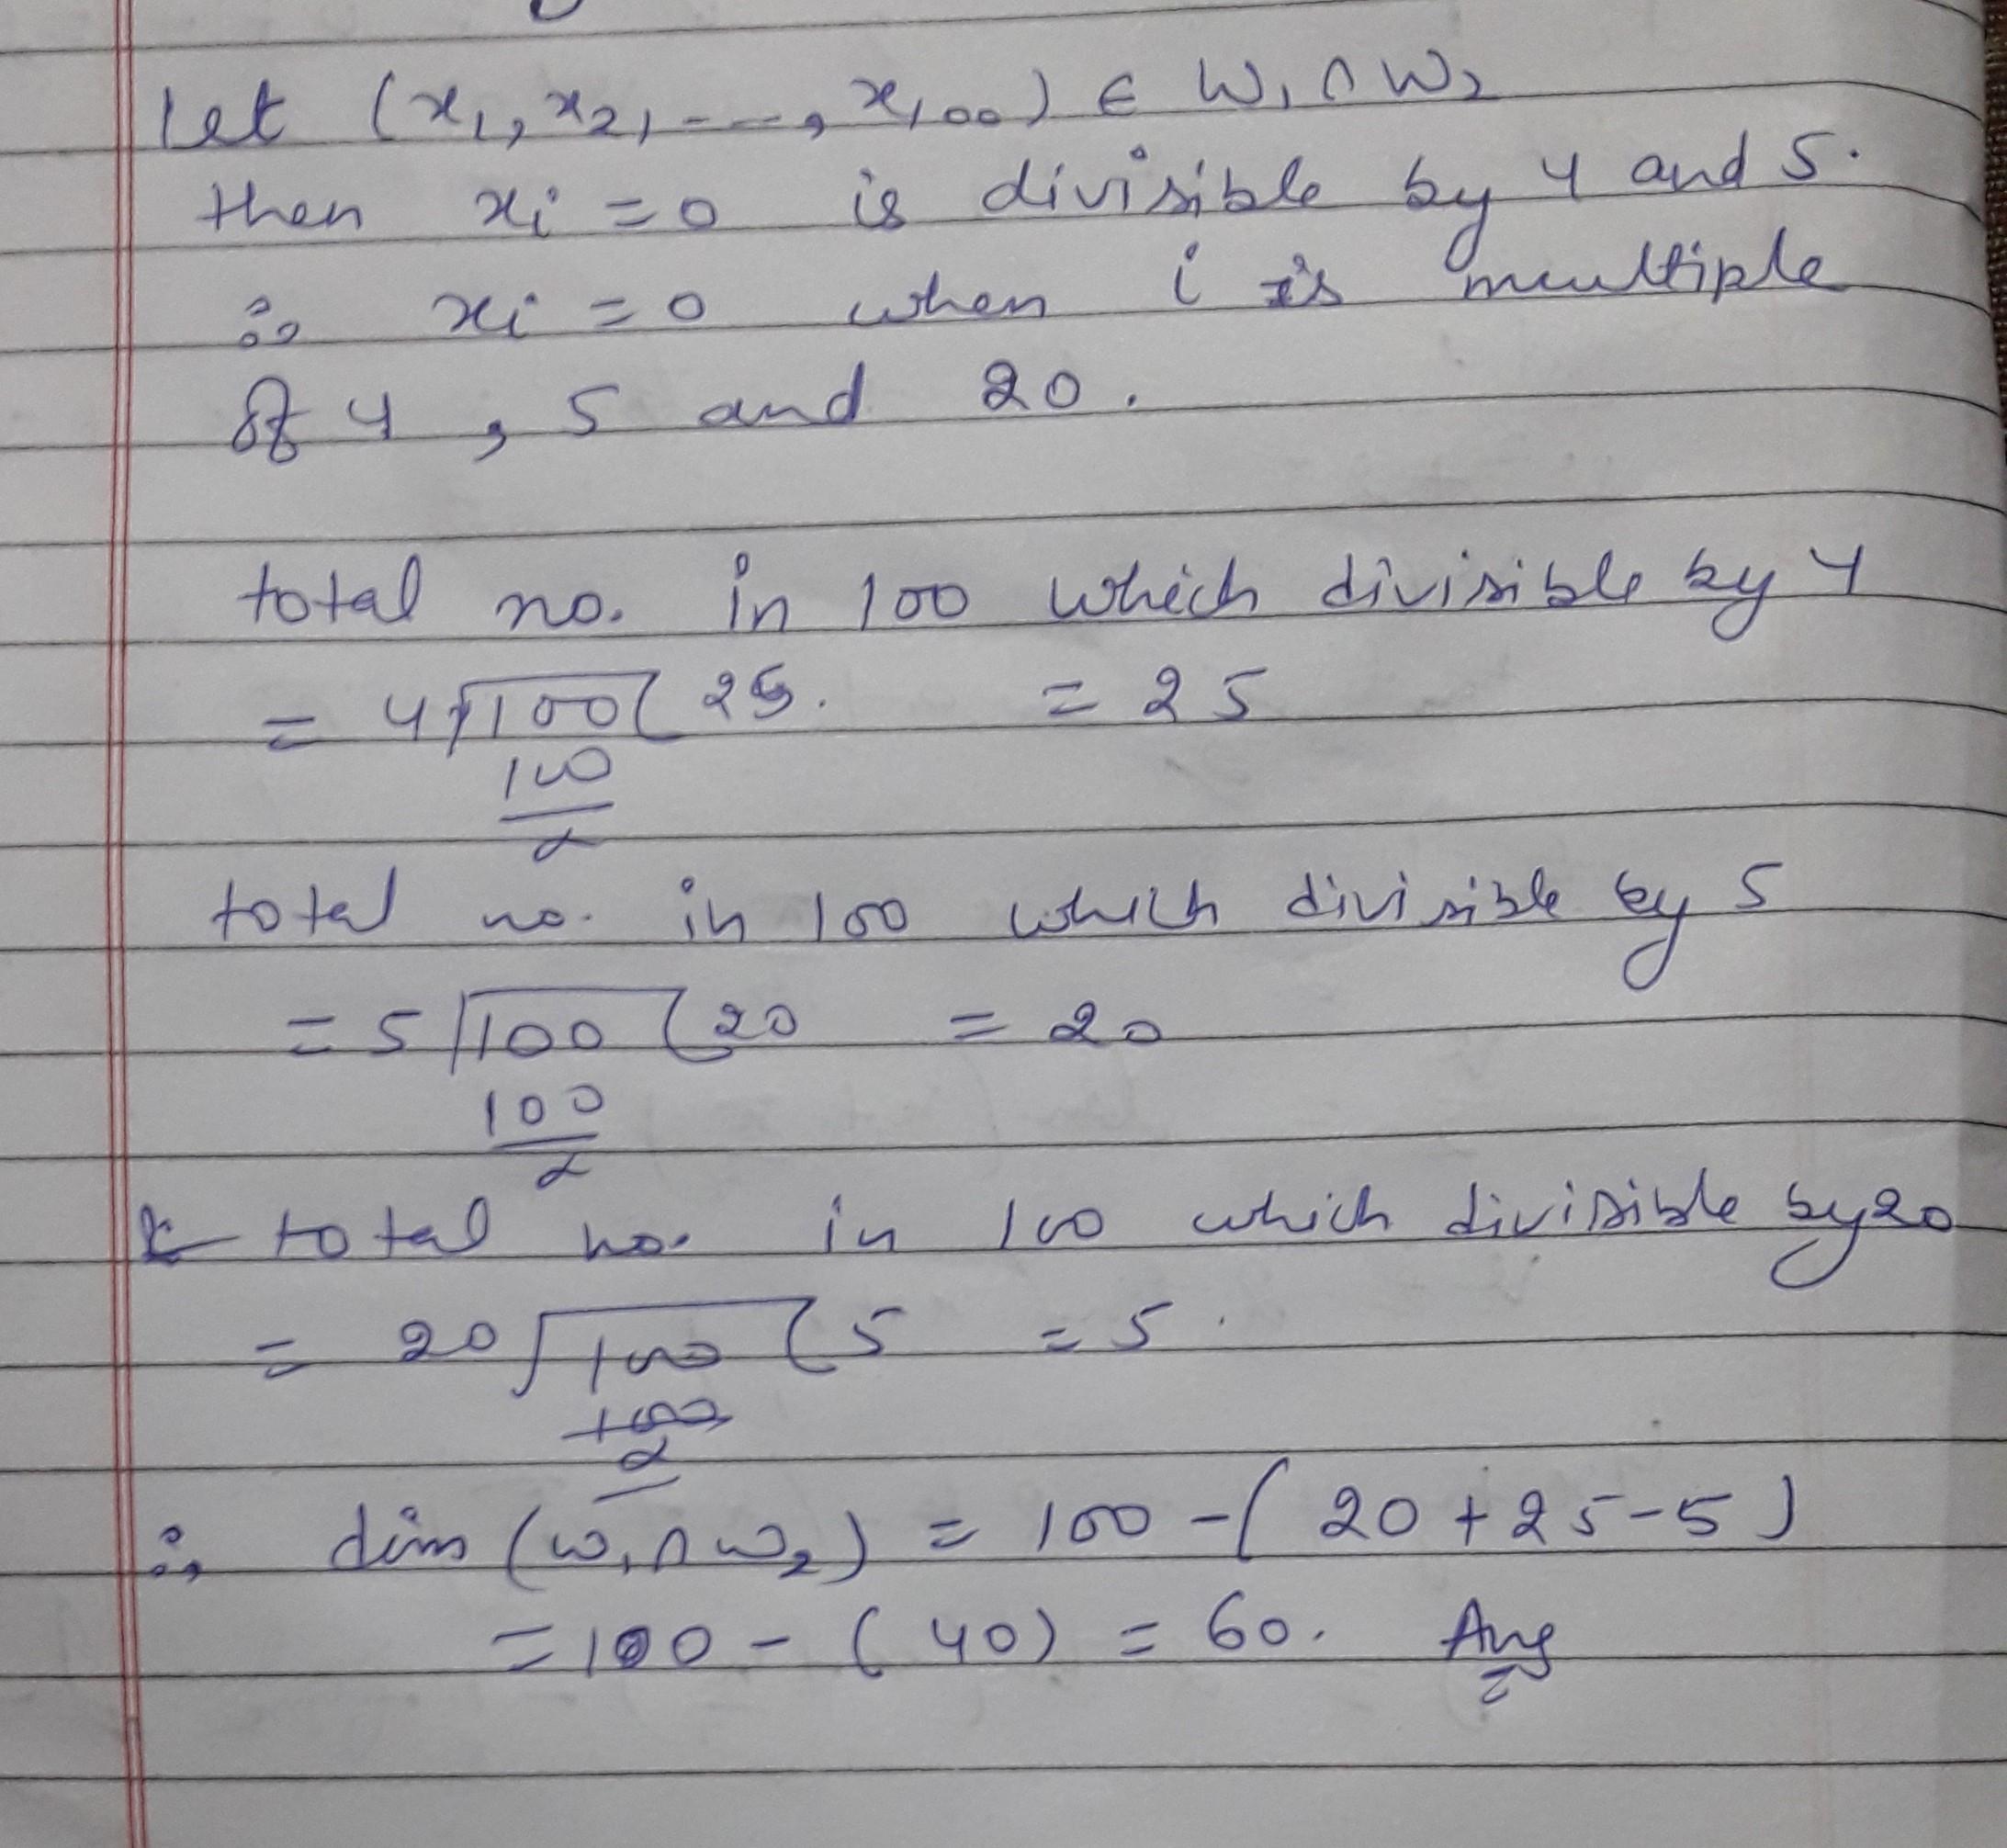 Let (x₁, x₂, ---, x₁₀₀) ∈ W₁ ∩ W₂
then xi = 0 is divisible by 4 and 5.
∴ xi = 0 when i is multiple
of 4, 5 and 20.
total no. in 100 which divisible by 4
= 4)100(25. = 25
100
total no. in 100 which divisible by 5
= 5)100(20 = 20
100
total no. in 100 which divisible by 20
= 20)100(5 = 5.
100
∴ dim (W₁ ∩ W₂) = 100 - (20 + 25 - 5)
= 100 - (40) = 60. Ans